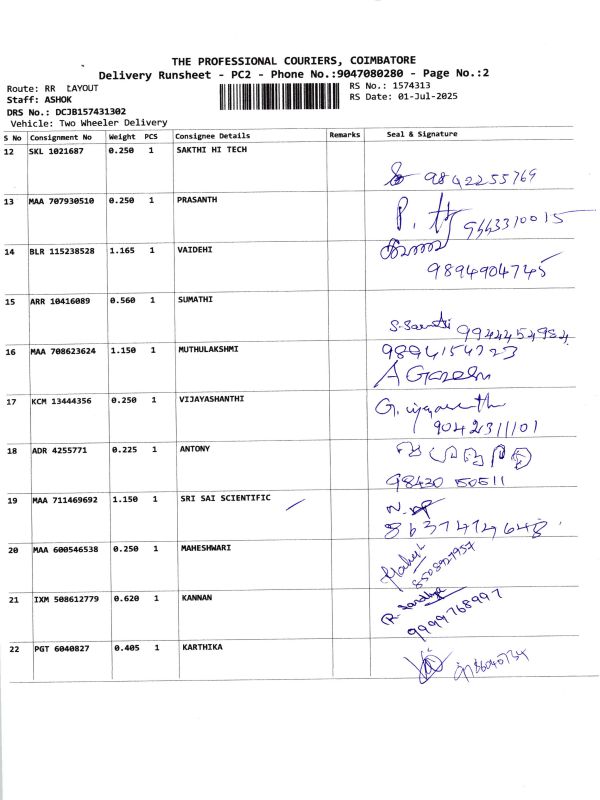 THE PROFESSIONAL COURIERS, COIMBATORE
Delivery Runsheet - PC2 - Phone No.:9047080280 - Page No.:2
Route: RR LAYOUT
RS No.: 1574313
Staff: ASHOK
RS Date: 01-Jul-2025
DRS No.: DCJB157431302
Vehicle: Two Wheeler Delivery
S No Consignment No Weight PCS Consignee Details Remarks Seal & Signature
12 SKL 1021687 0.250 1 SAKTHI HI TECH
9842255769
13 MAA 707930510 0.250 1 PRASANTH
P.
9443310015
14 BLR 115238528 1.165 1 VAIDEHI
9894904745
15 ARR 10416089 0.560 1 SUMATHI
9944454984
16 MAA 708623624 1.150 1 MUTHULAKSHMI
9894154723
A Ganesh
17 KCM 13444356 0.250 1 VIJAYASHANTHI
G. vijayasanthi
9042311101
18 ADR 4255771 0.225 1 ANTONY
98430 50511
19 MAA 711469692 1.150 1 SRI SAI SCIENTIFIC
8637474648
20 MAA 600546538 0.250 1 MAHESHWARI
8508927957
21 IXM 508612779 0.620 1 KANNAN
9999768997
22 PGT 6040827 0.405 1 KARTHIKA